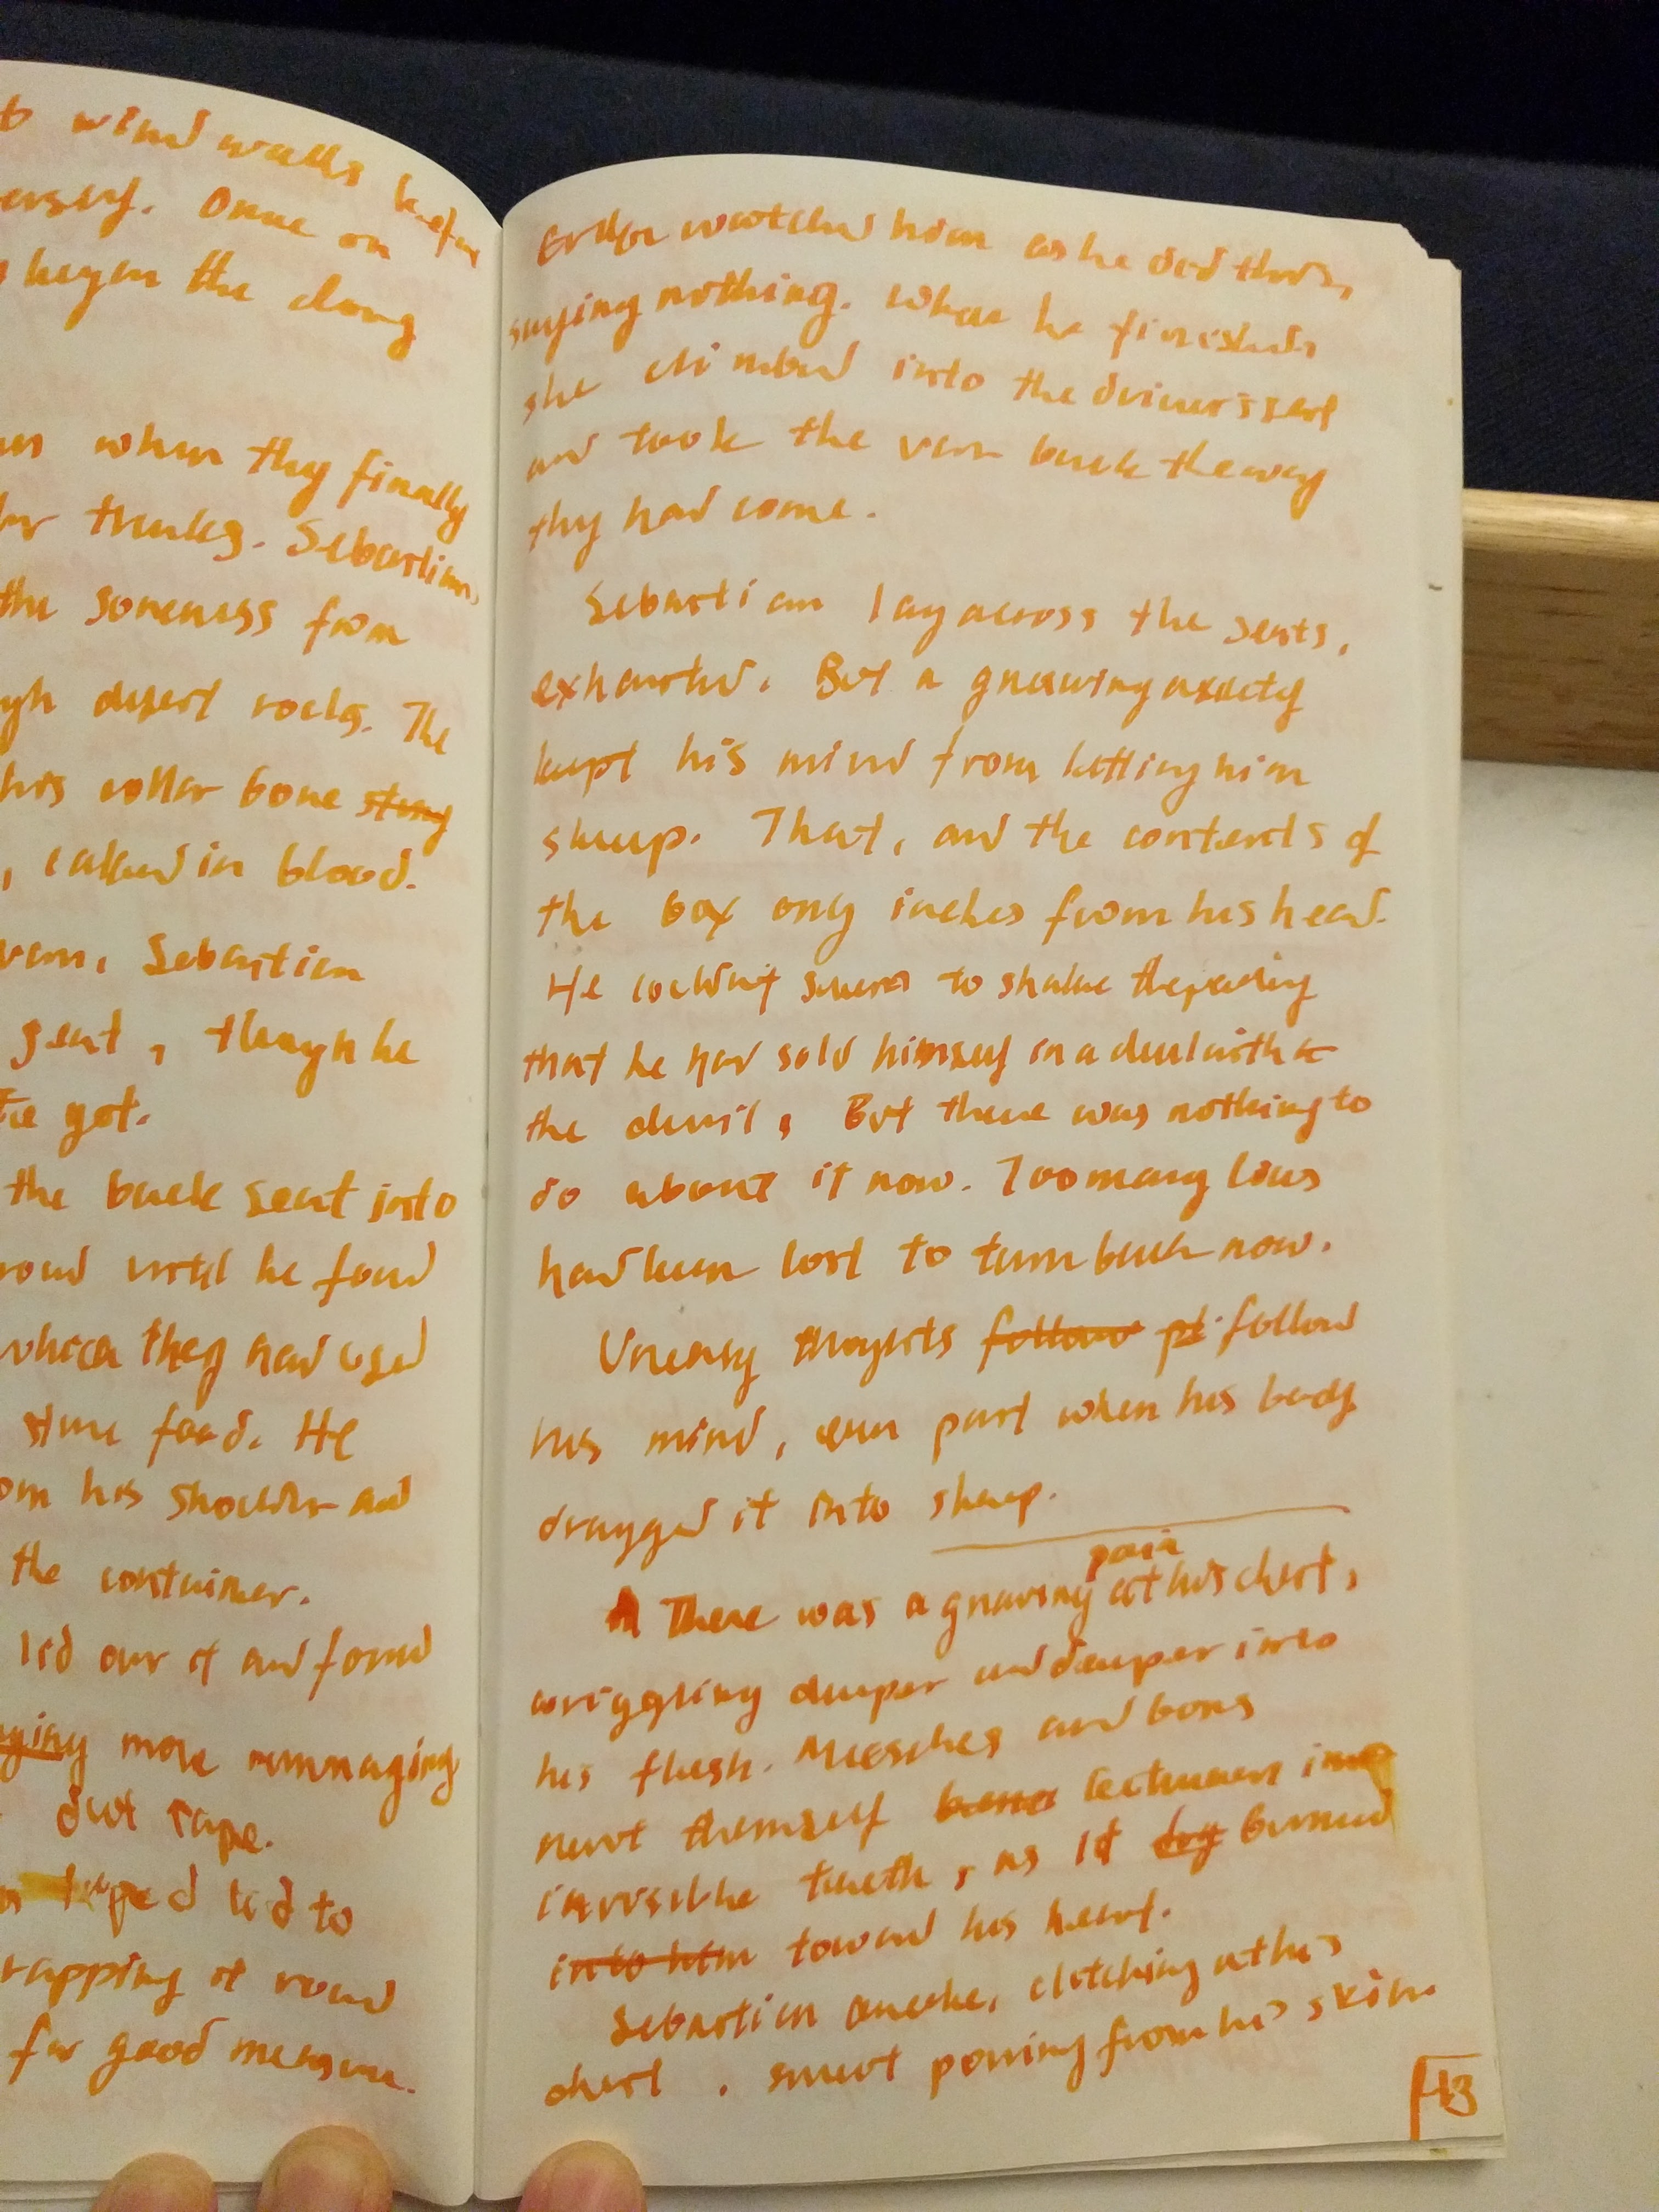 wind walls before
Once on
began the long
when they finally
thanks. Sebastian,
the soreness from
desert rocks. The
his collar bone stung
, caked in blood.
van, Sebastian
seat, though he
got.
the back seat into
until he found
which they had used
store food. He
his shoulder and
the container.
lid over it and found
more rummaging
duct tape.
taped lid to
rapping it round
for good measure.
watched him as he did this,
saying nothing. When he finished,
she climbed into the driver's seat
and took the van back the way
they had come.
Sebastian lay across the seats,
exhausted. But a gnawing anxiety
kept his mind from letting him
sleep. That, and the contents of
the box only inches from his head.
He couldn't seem to shake the feeling
that he had sold himself in a deal with
the devil, But there was nothing to
do about it now. Too many lives
had been lost to turn back now.
Uneasy thoughts follow followed
his mind, even past when his body
dragged it into sleep.
pain
There was a gnawing at his chest,
wriggling deeper and deeper into
his flesh. Muscles and bones
themself between
invisible teeth, as it burned
into him toward his heart.
Sebastian awoke, clutching at his
chest, sweat pouring from his skin.
43